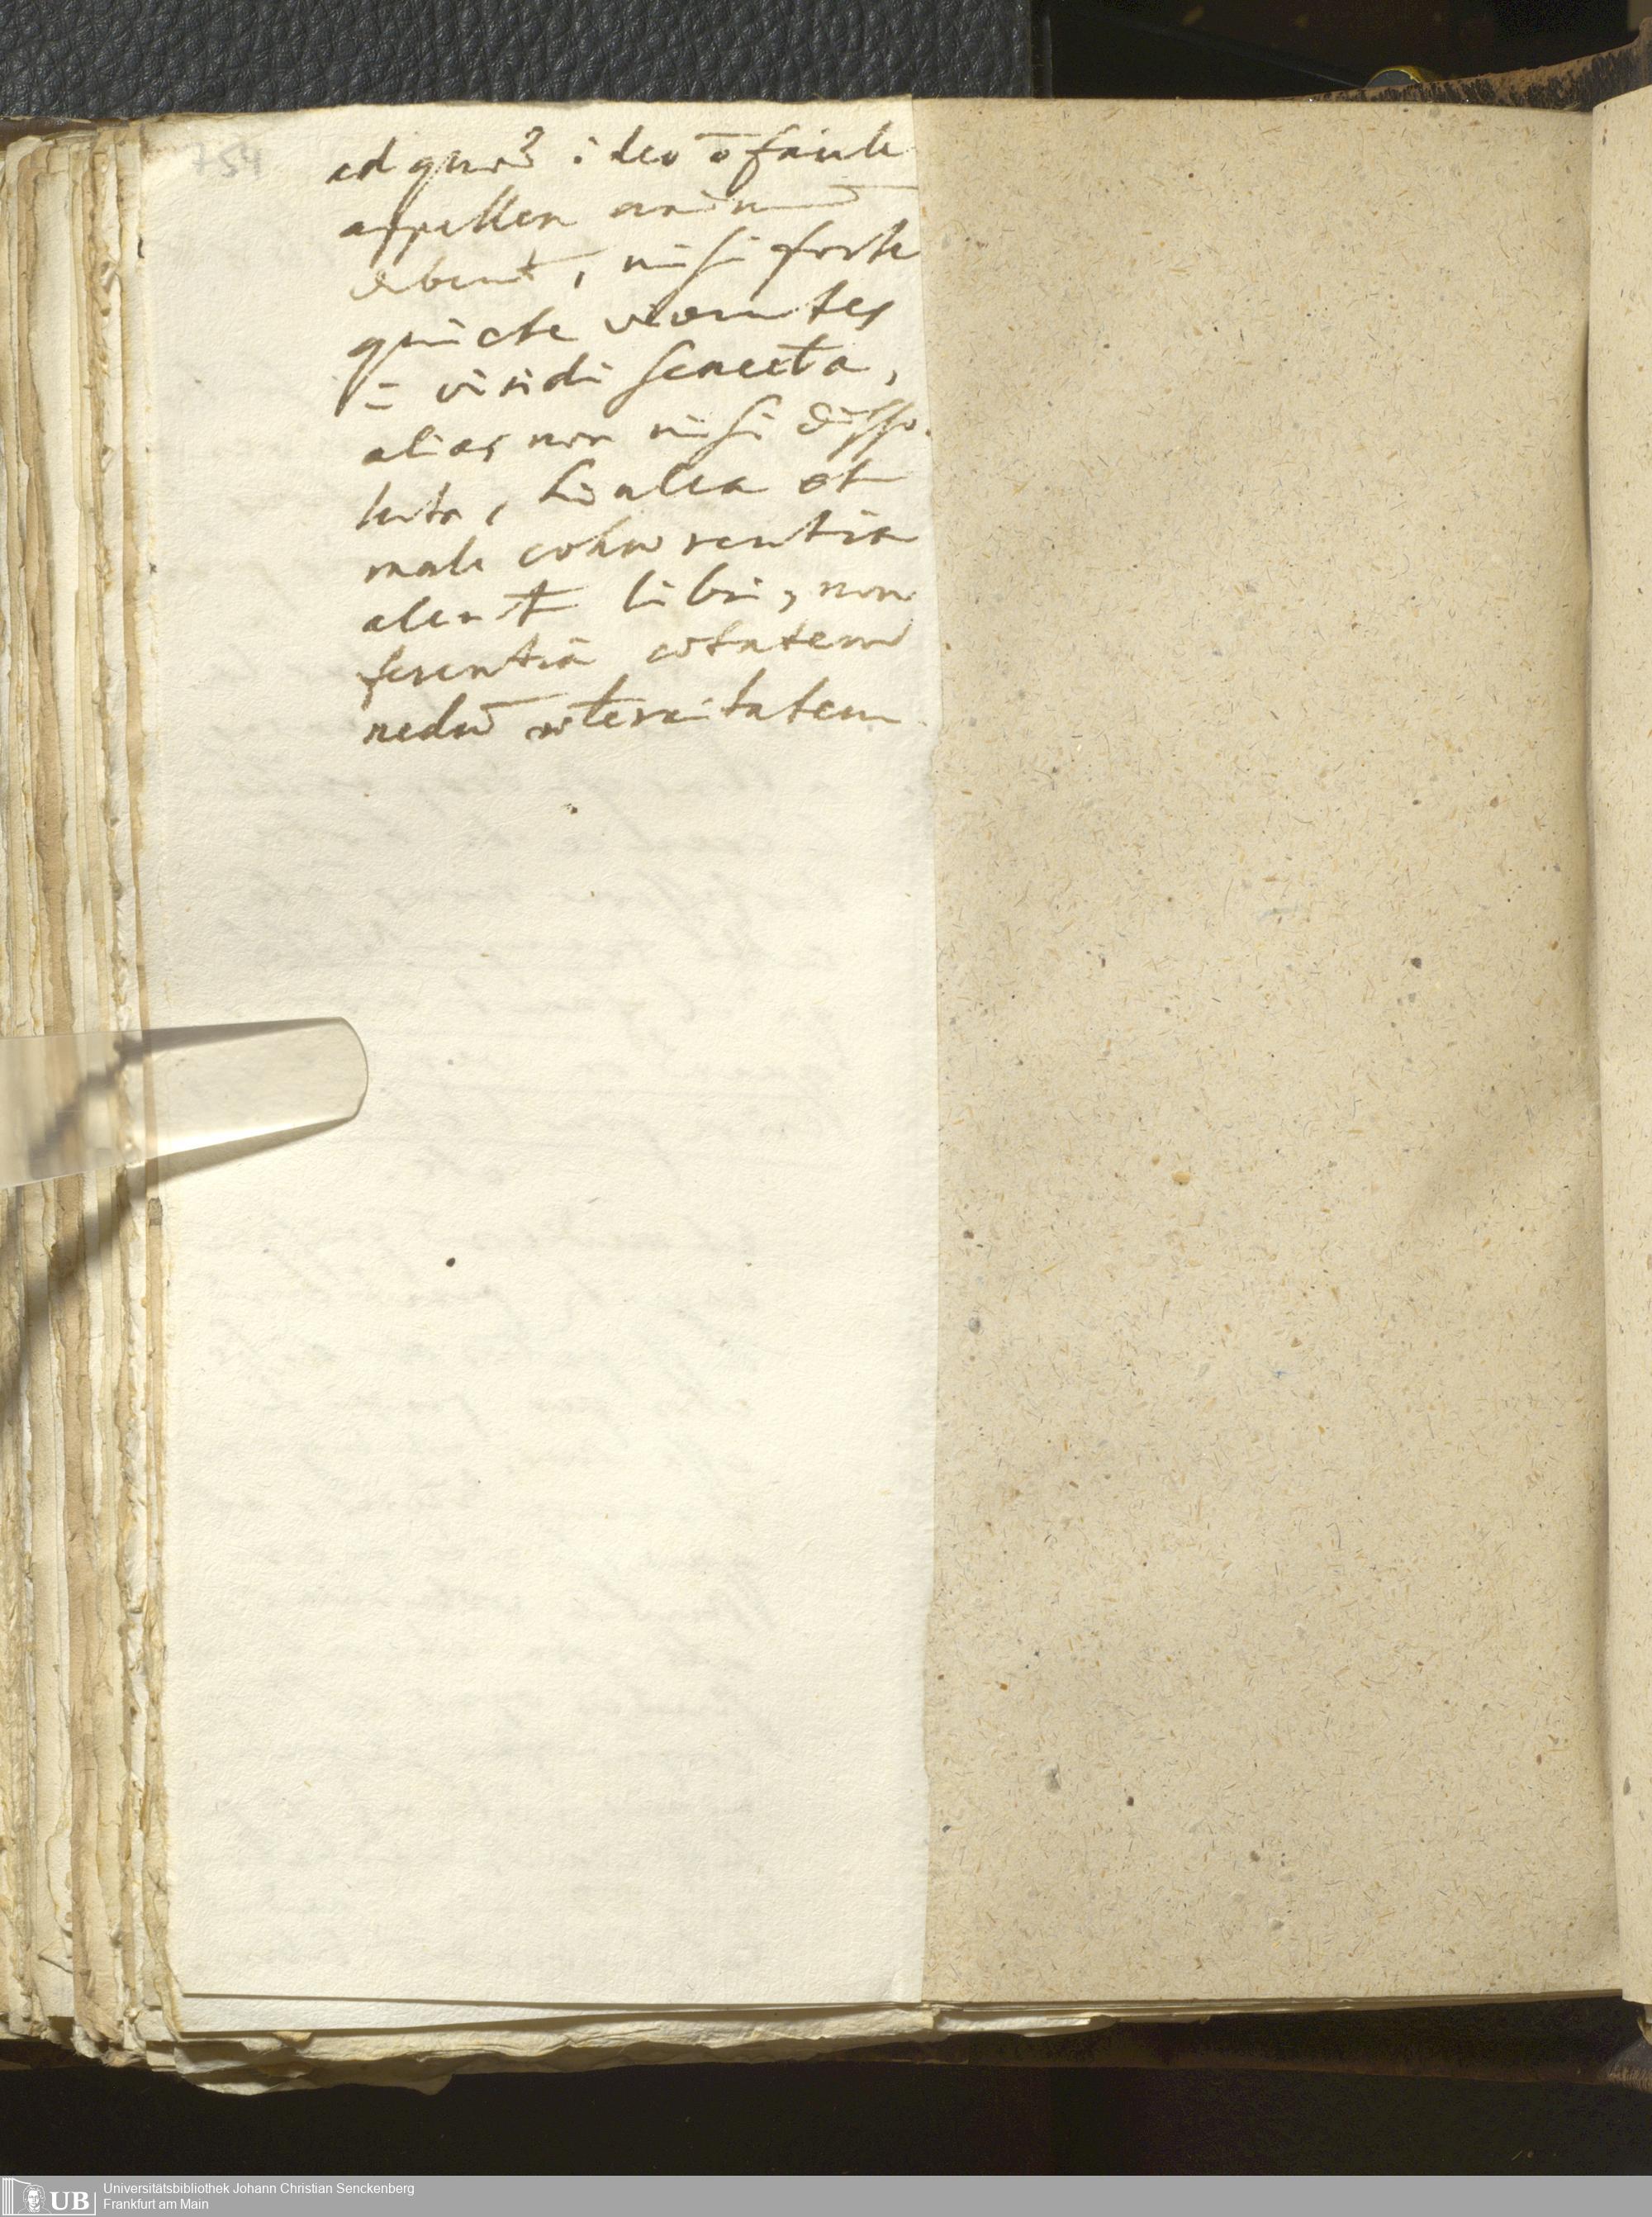 754
ad quod ideo ō facile
appellere animū
debent, nisi forte
quiete viventes
in viridi senecta,
alias non nisi disso-
luta, hiulca et
male cohaerentia
alent libri, non
ferentia aetatem
nedū aeternitatem
UB
Universitätsbibliothek Johann Christian Senckenberg
Frankfurt am Main